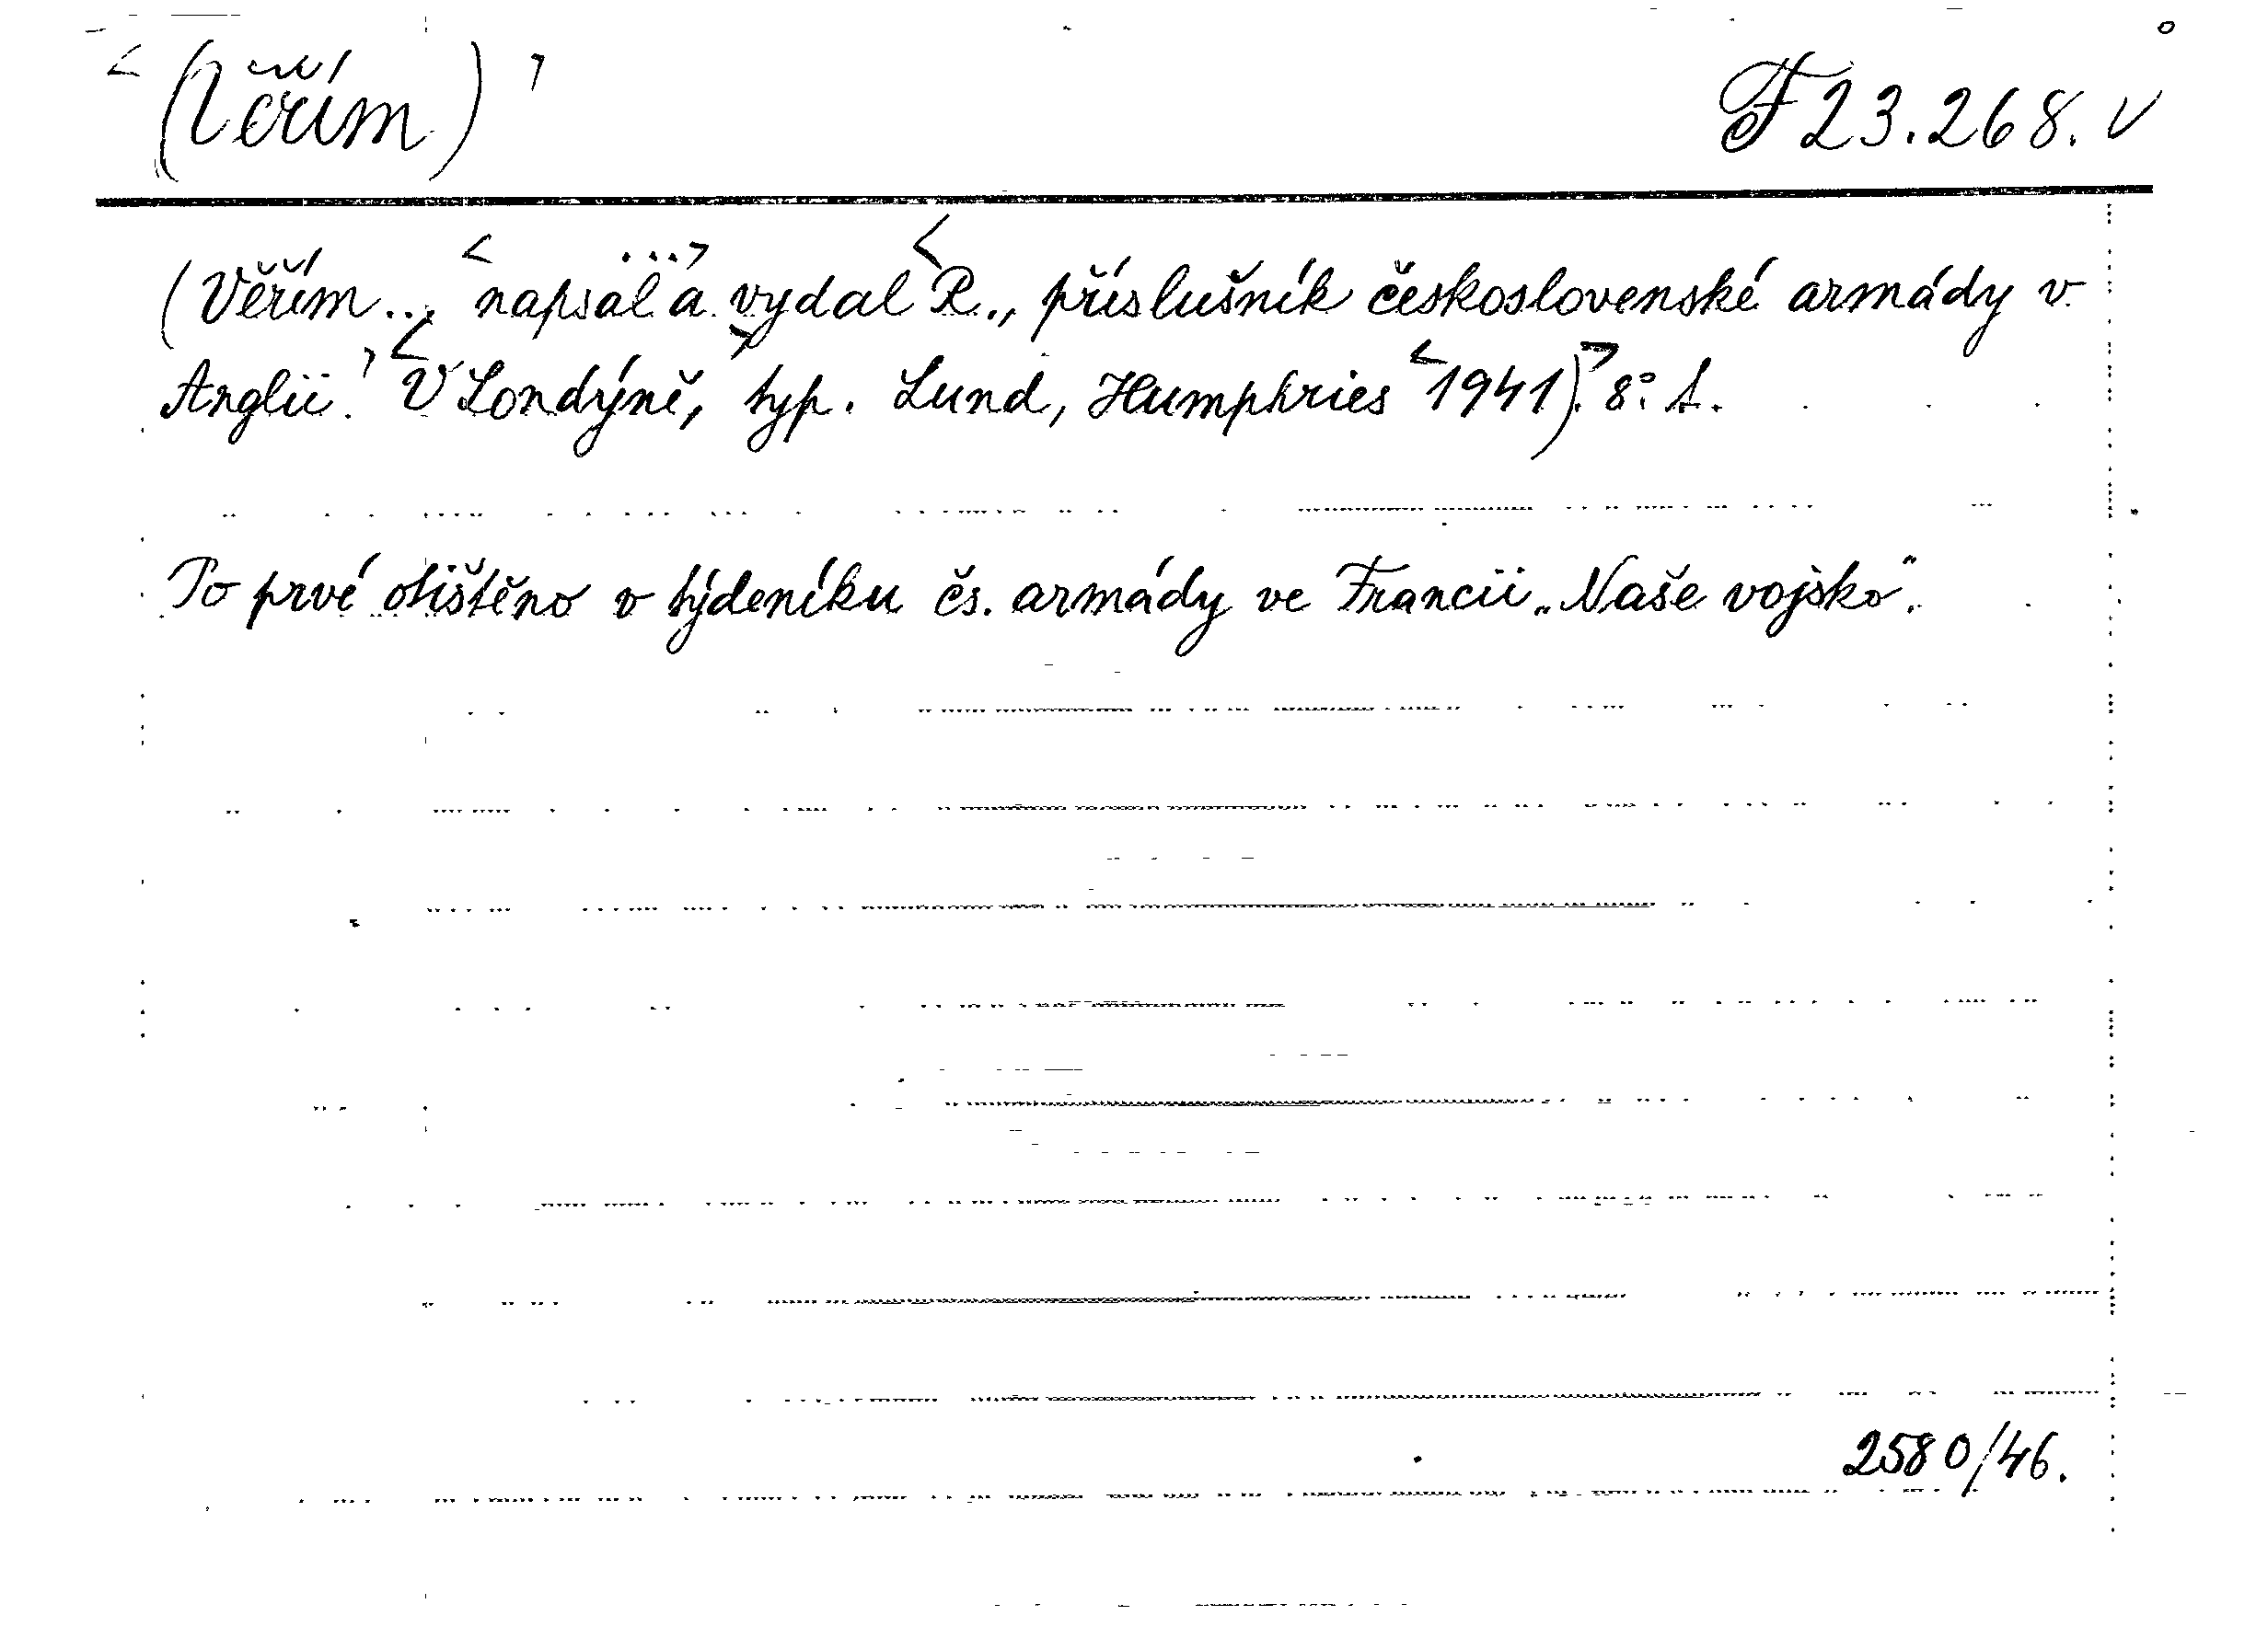 (Věřím) F 23.268. v
(Věřím... napsal a vydal R., příslušník československé armády v
Anglii. V Londýně, typ. Lund, Humphries 1941). 8° A.
Po prvé otištěno v týdeníku čs. armády ve Francii „Naše vojsko“.
2580/46.